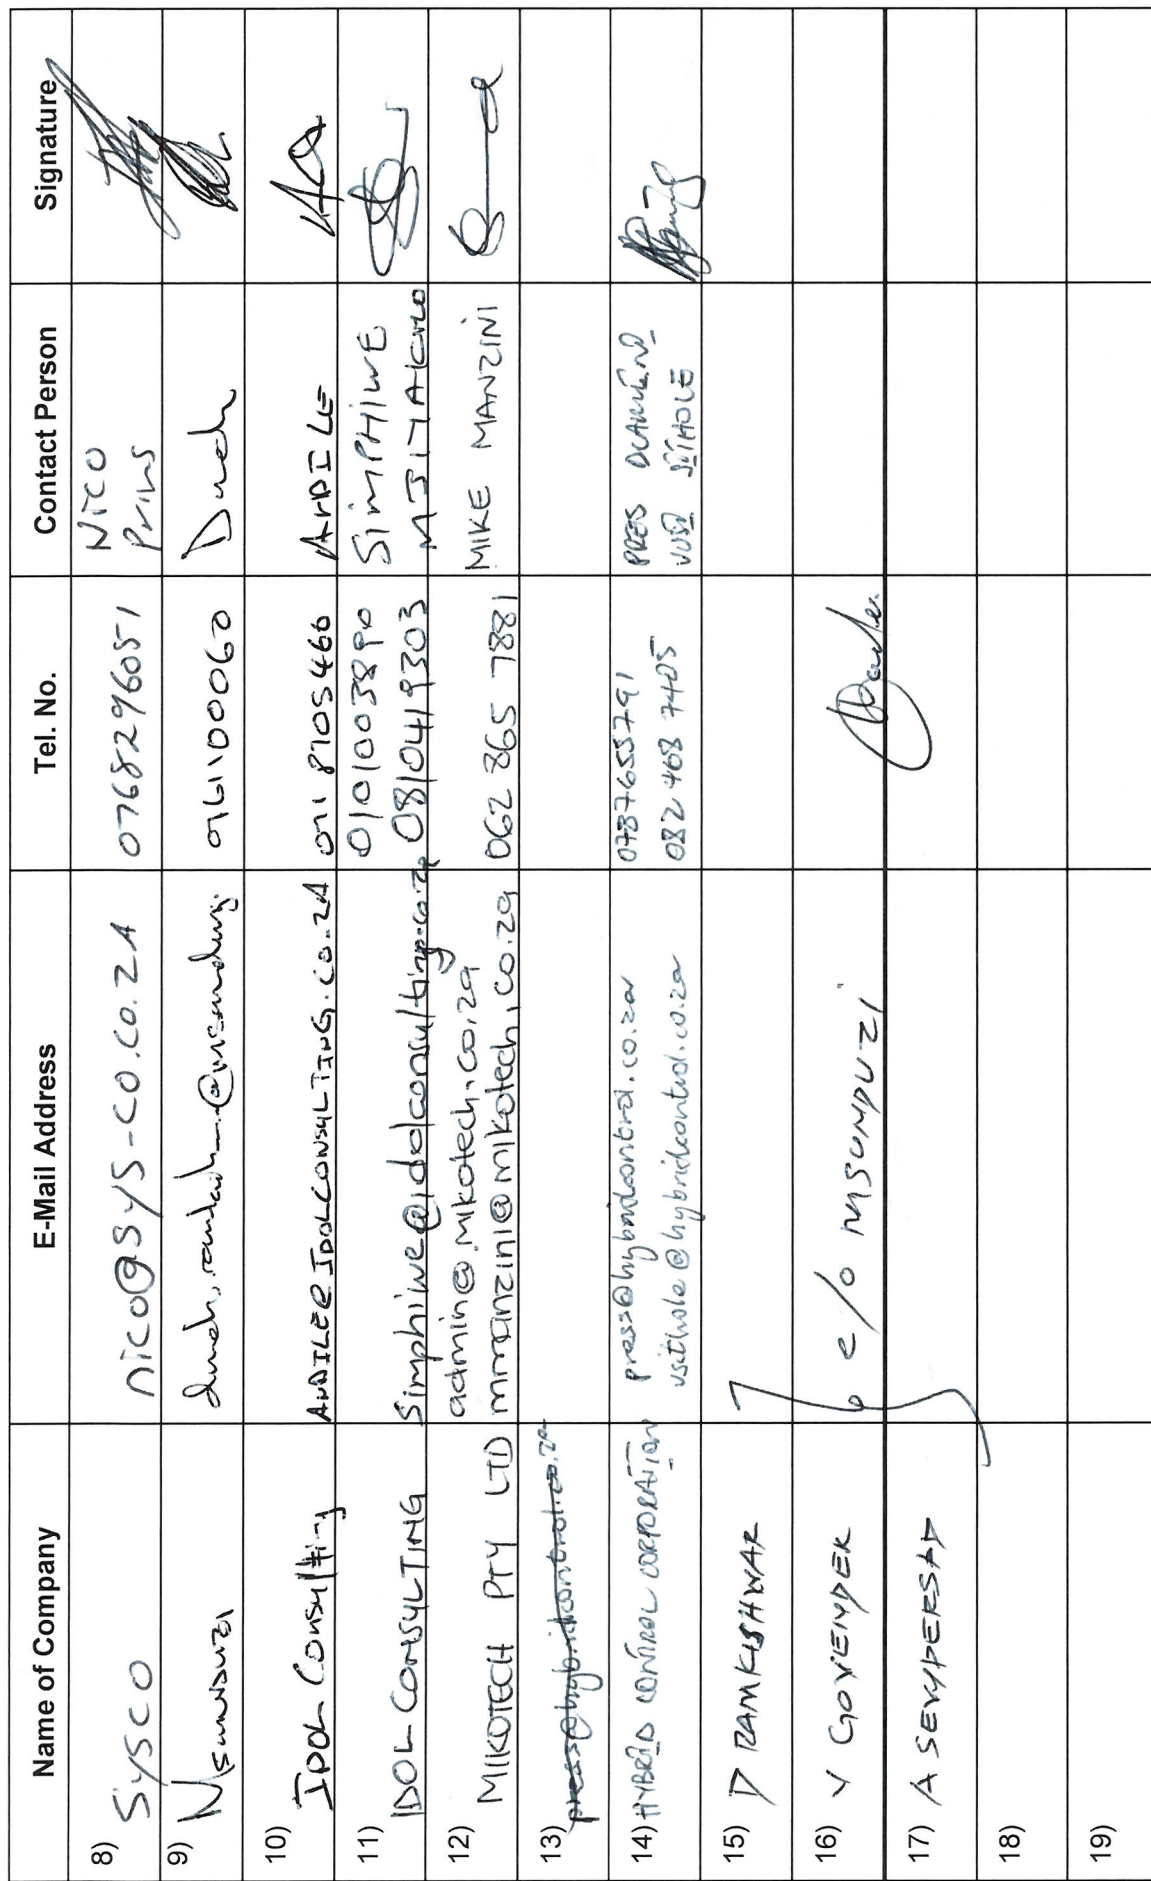 Name of Company E-Mail Address Tel. No. Contact Person Signature
8) SYSCO nico@SYS-CO.CO.ZA 0768296051 Nico Prins
9) Msunduzi 0761100060
10) IDOL Consulting ANDILE@IDOLCONSULTING.CO.ZA 071 8705460 ANDILE
11) IDOL CONSULTING Simphiwe@idolconsulting.co.za 0101003890
0810419303 SIMPHIWE
12) MIKOTECH PTY LTD admin@mikotech.co.za
mmanzini@mikotech.co.za 062 865 7881 MIKE MANZINI
13) press@hybridcontrol.co.za
14) HYBRID CONTROL CORPORATION press@hybridcontrol.co.za 0787653791 PRES
vsithole@hybridcontrol.co.za 082 468 7405 VUSI SITHOLE
15) D RAMKISHWAR
16) Y GOVENDER c/o MSUNDUZI
17) A SEWPERSAD
18)
19)